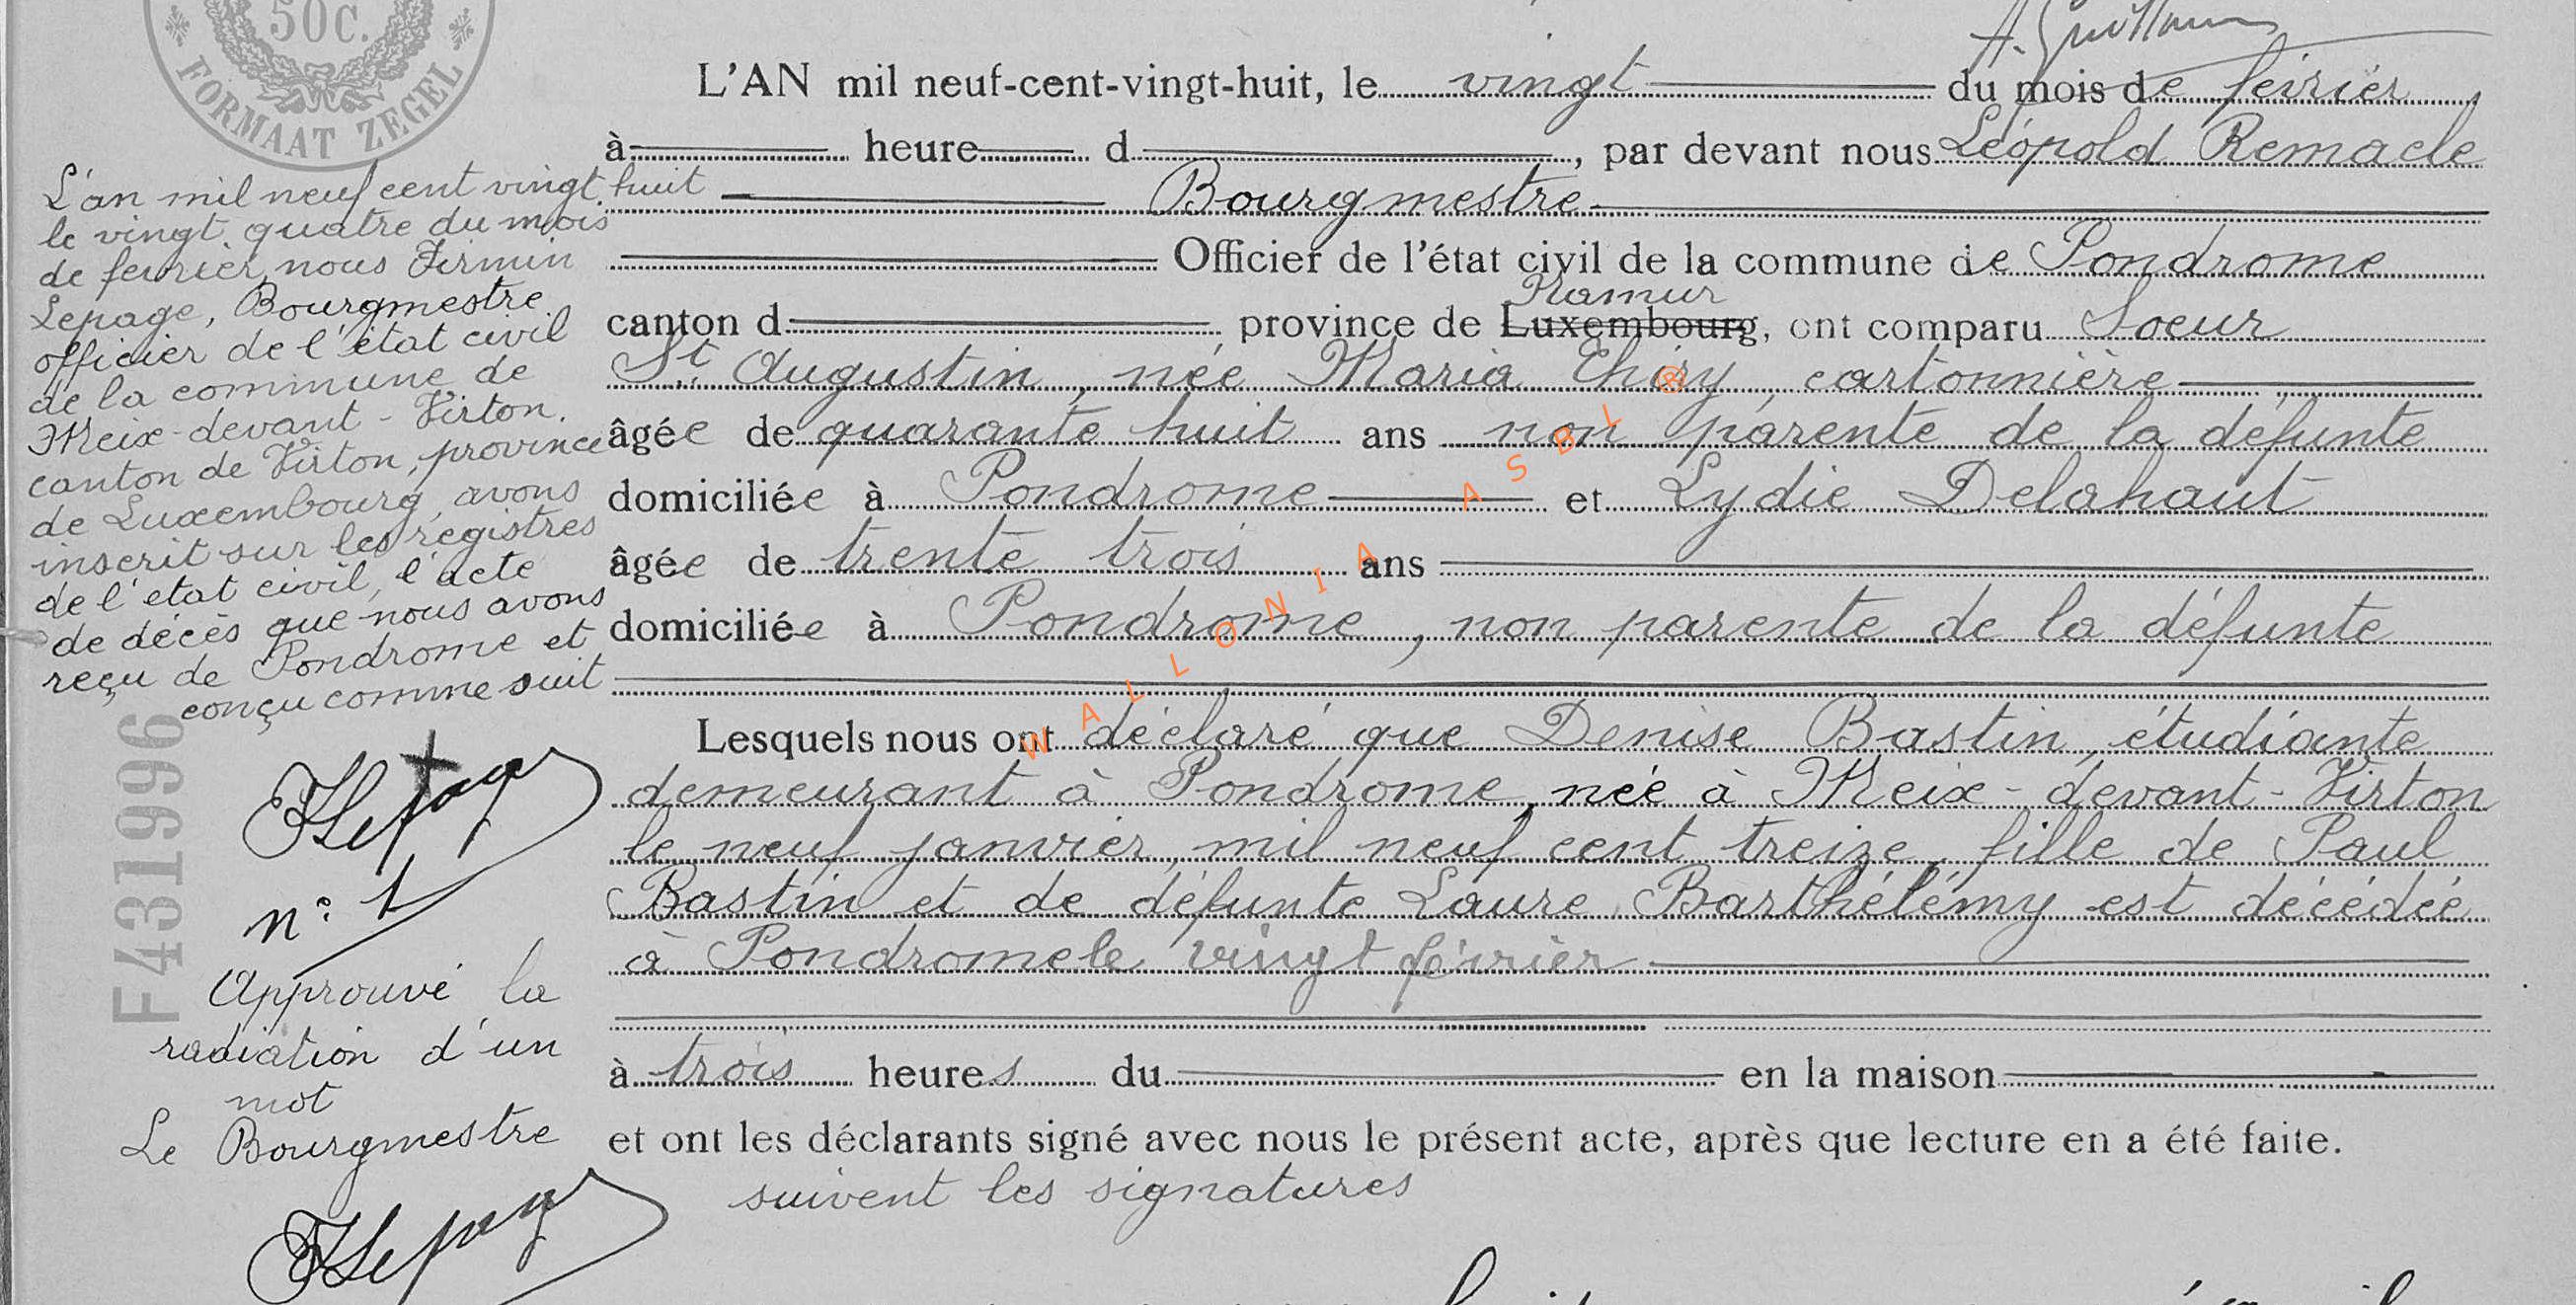 50C.
FORMAAT ZEGEL
A. Guillaum
L'AN mil neuf-cent-vingt-huit, le vingt du mois de février
à heure d , par devant nous Léopold Remacle
Bourgmestre
Officier de l'état civil de la commune de Pondrome
canton d province de Luxembourg, ont comparu Soeur
Namur
St Augustin, née Maria Thiry, cartonnière
âgée de quarante huit ans non parente de la défunte
domiciliée à Pondrome et Lydie Delahaut
âgée de trente trois ans
domiciliée à Pondrome, non parente de la défunte
Lesquels nous ont déclaré que Denise Bastin, étudiante
demeurant à Pondrome, née à Meix-devant-Virton
le neuf janvier mil neuf cent treize, fille de Paul
Bastin et de défunte Laure Barthélémy est décédée
à Pondrome le vingt février
à trois heures du en la maison
et ont les déclarants signé avec nous le présent acte, après que lecture en a été faite.
suivent les signatures
L'an mil neuf cent vingt huit
le vingt quatre du mois
de fevrier, nous Firmin
Lepage, Bourgmestre
officier de l'état civil
de la commune de
Meix-devant-Virton.
canton de Virton, province
de Luxembourg, avons
inscrit sur les registres
de l'etat civil, l'acte
de décès que nous avons
reçu de Pondrome et
conçu comme suit
FLepage
n° 1
Approuvé la
radiation d'un
mot
Le Bourgmestre
FLepage
F431996
WALLONIA ASBL ®